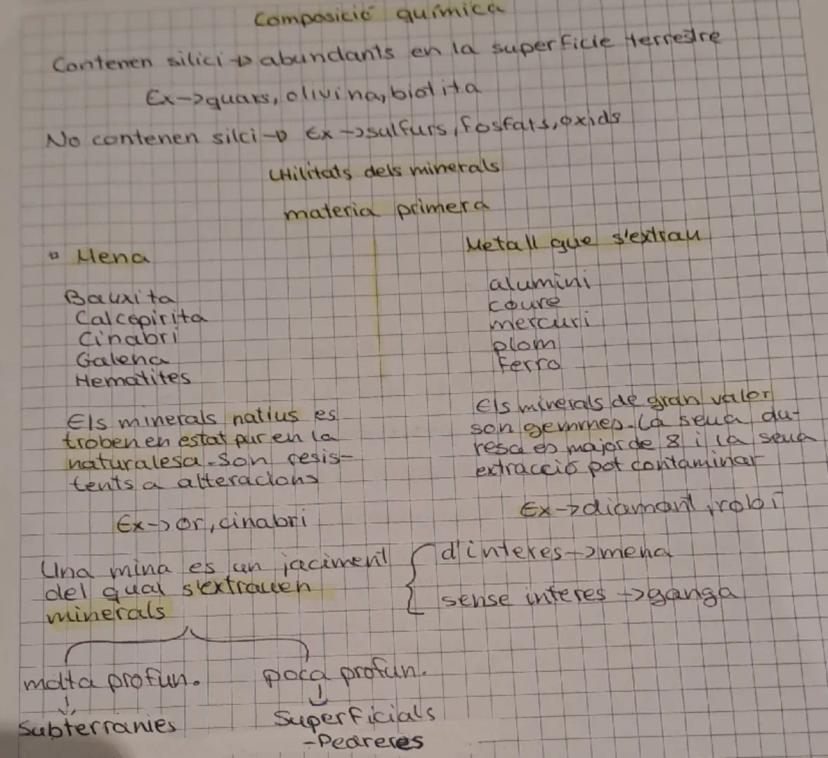 Composició química
Contenen silici → abundants en la superficie terrestre
Ex → quars, olivina, biotita
No contenen silci → Ex → sulfurs, fosfats, oxids
Utilitats dels minerals
materia primera
Mena
Metall que s'extrau
Bauxita
Calcopirita
Cinabri
Galena
Hematites
alumini
coure
mercuri
plom
Ferro
Els minerals natius es
troben en estat pur en la
naturalesa. Son resis-
tents a alteracions
Ex → or, cinabri
Els minerals de gran valor
son gemmes. La seua du-
resa es major de 8 i la seua
extracció pot contaminar
Ex → diamant, robí
Una mina es un jaciment
del qual s'extrauen
minerals
d'interes → mena
sense interes → ganga
molta profun.
Subterranies
poca profun.
Superficials
- Pedreres